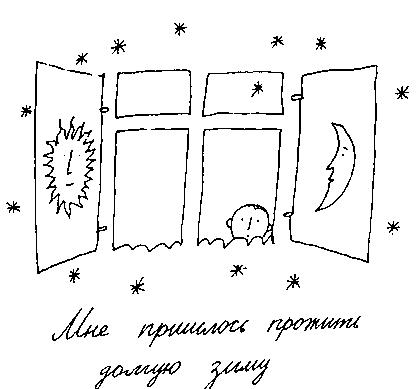 Мне пришлось прожить
долгую зиму